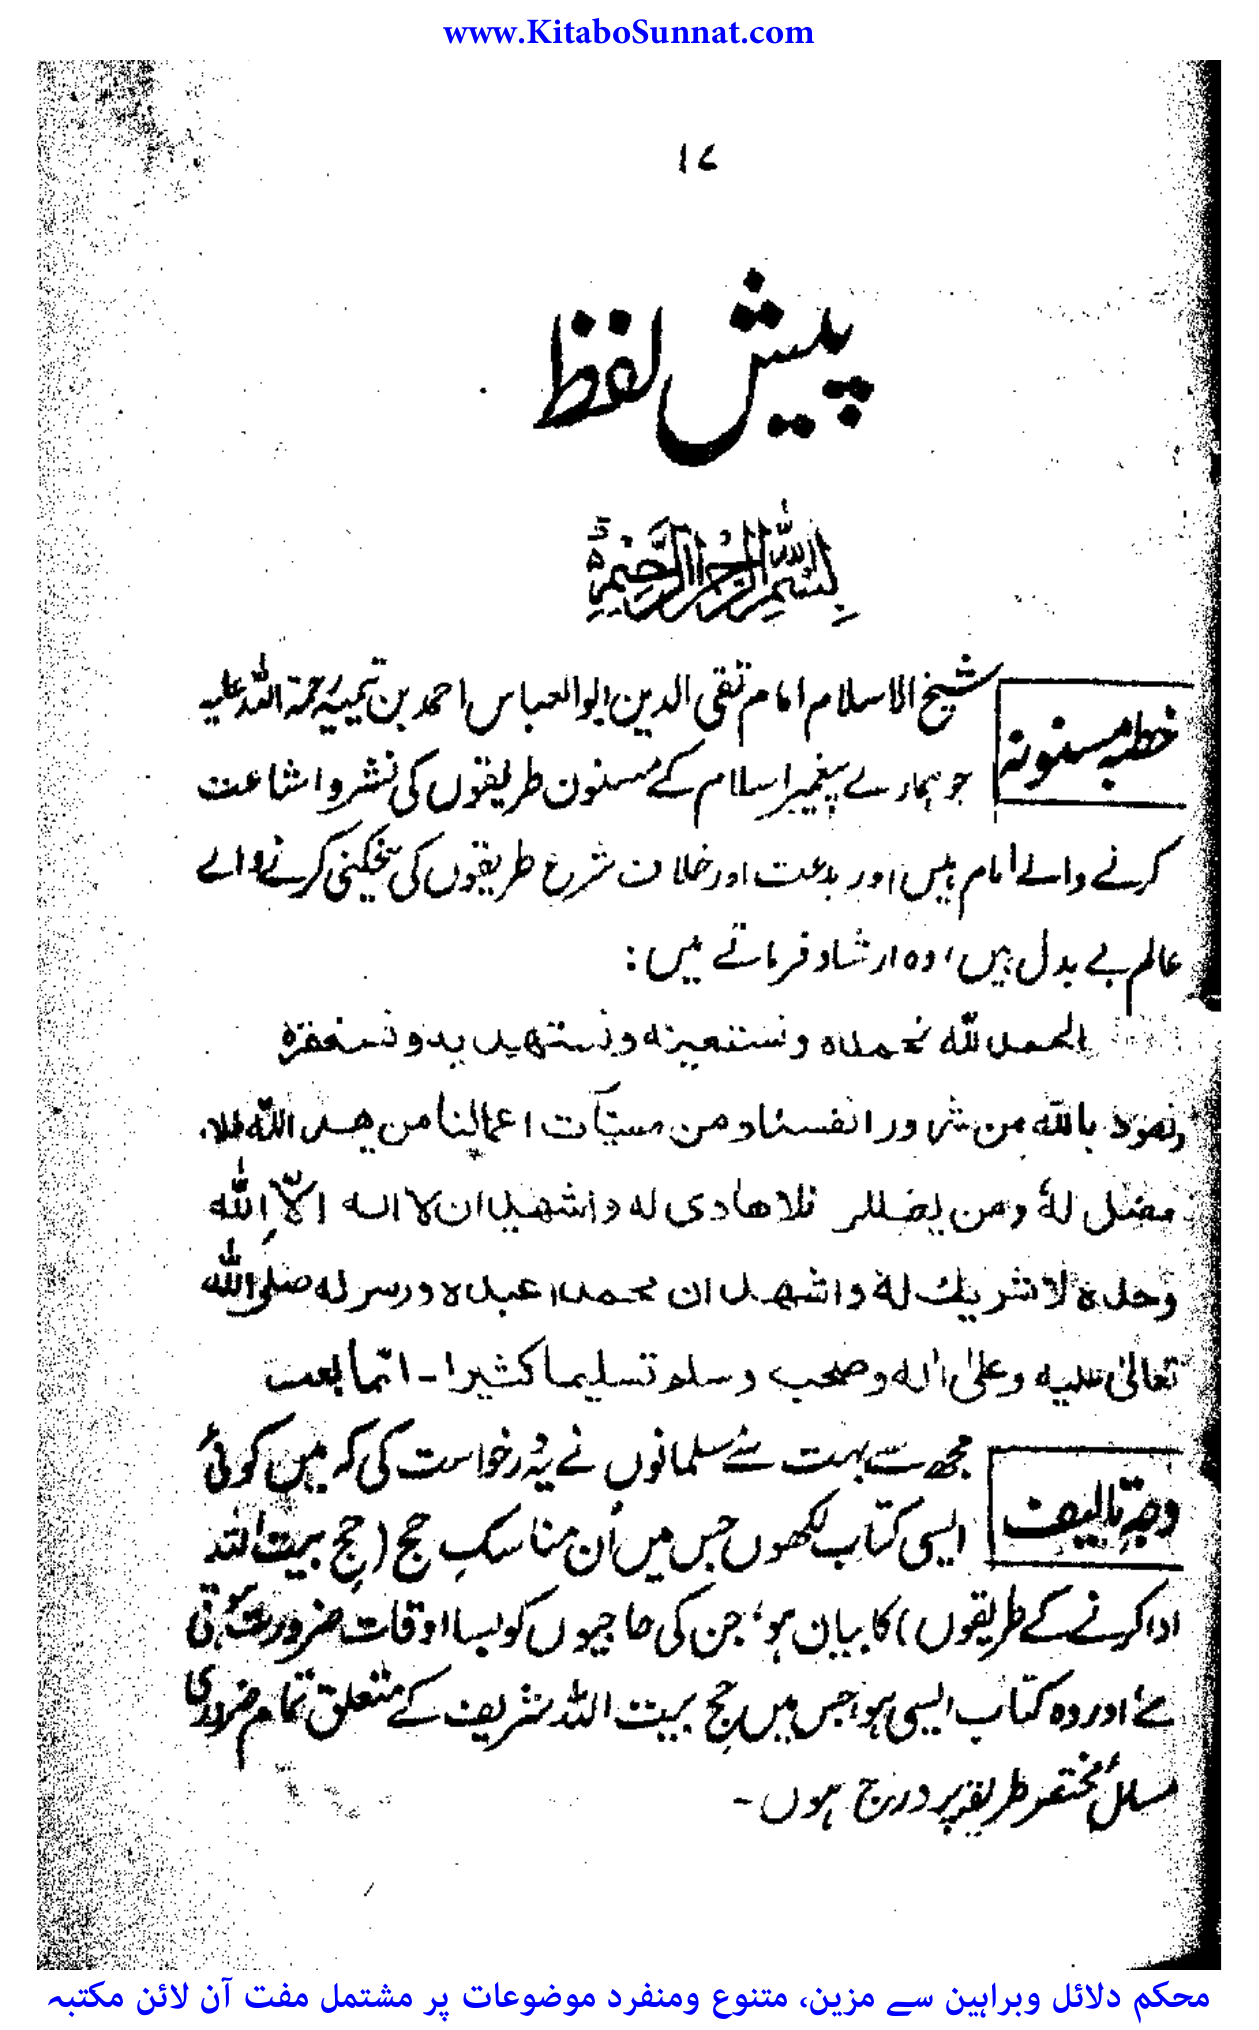 www.KitaboSunnat.com
۱۷
پیش لفظ
بِسْمِ اللّٰہِ الرَّحْمٰنِ الرَّحِیْمِ
خطبہ مسنونہ
شیخ الاسلام امام تقی الدین ابوالعباس احمد بن تیمیہ رحمۃ اللہ علیہ
جو ہمارے پیغمبر اسلام کے مسنون طریقوں کی نشر و اشاعت
کرنے والے امام ہیں اور بدعت اور خلاف شرع طریقوں کی بیخکنی کرنے والے
عالم بے بدل ہیں، وہ ارشاد فرماتے ہیں:
الحمد للّٰه نحمده ونستعينه ونستهديه ونستغفره
ونعوذ باللّٰه من شرور انفسنا ومن سيّآت اعمالنا من يهد اللّٰه فلا
مضل لهٗ ومن يضلل فلا هادی له واشهد ان لا اله الّا اللّٰه
وحده لا شريك لهٗ واشهد ان محمدا عبده ورسوله صلی اللّٰه
تعالیٰ عليه وعلیٰ اٰله وصحبه وسلم تسليما كثيرا ـ امّا بعد
وجہِ تالیف
مجھ سے بہت سے مسلمانوں نے یہ درخواست کی کہ میں کوئی
ایسی کتاب لکھوں جس میں اُن مناسکِ حج (حج بیت اللہ
ادا کرنے کے طریقوں) کا بیان ہو، جن کی حاجیوں کو بسا اوقات ضرورت پڑتی
ہے اور وہ کتاب ایسی ہو، جس میں حج بیت اللہ شریف کے متعلق تمام ضروری
مسائل مختصر طریقہ پر درج ہوں۔
محکم دلائل وبراہین سے مزین، متنوع ومنفرد موضوعات پر مشتمل مفت آن لائن مکتبہ